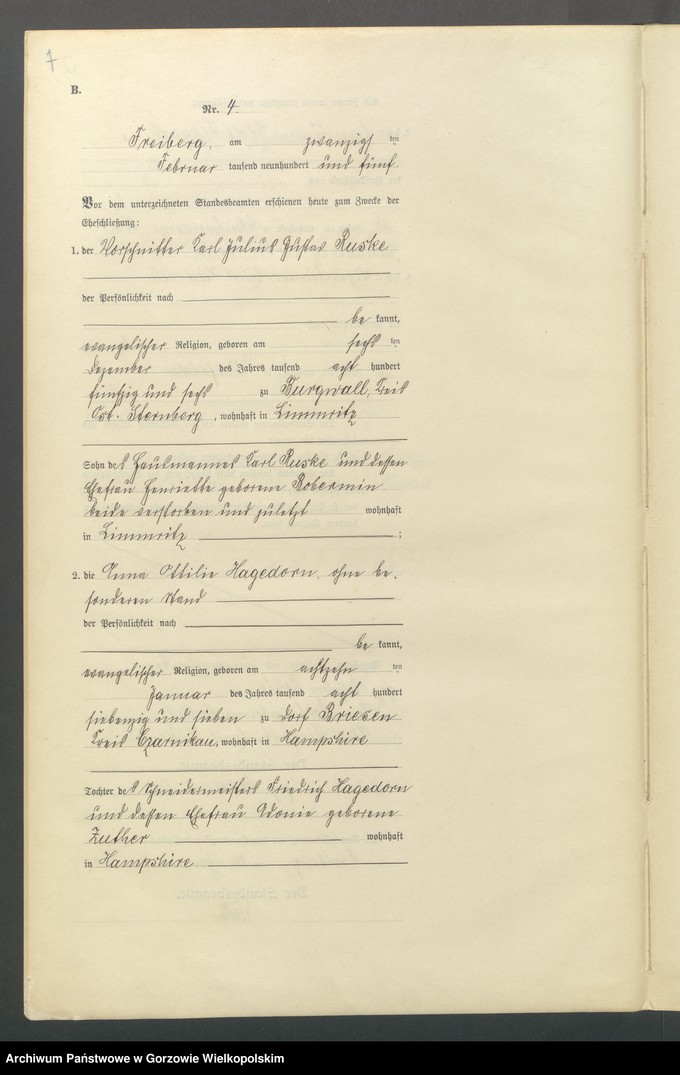 7
B.
Nr. 4.
Freiberg, am zwanzigsten
Februar tausend neunhundert und fünf.
Vor dem unterzeichneten Standesbeamten erschienen heute zum Zwecke der
Eheschließung:
1. der Vorschnitter Karl Julius Gustav Ruske
der Persönlichkeit nach
be kannt,
evangelischer Religion, geboren am sechsten
Dezember des Jahres tausend acht hundert
fünfzig und sechs zu Burgwall, Kreis
Ost-Sternberg, wohnhaft in Limmritz
Sohn des Hausmannes Karl Ruske und dessen
Ehefrau Henriette geborene Robermin
beide verstorben und zuletzt wohnhaft
in Limmritz ;
2. die Anna Ottilie Hagedorn, ohne be-
sonderen Stand
der Persönlichkeit nach
be kannt,
evangelischer Religion, geboren am achtzehnten
Januar des Jahres tausend acht hundert
siebenzig und sieben zu Dorf Briesen
Kreis Czarnikau, wohnhaft in Hampshire
Tochter des Schneidermeisters Friedrich Hagedorn
und dessen Ehefrau Idonie geborene
Zuther wohnhaft
in Hampshire
Archiwum Państwowe w Gorzowie Wielkopolskim